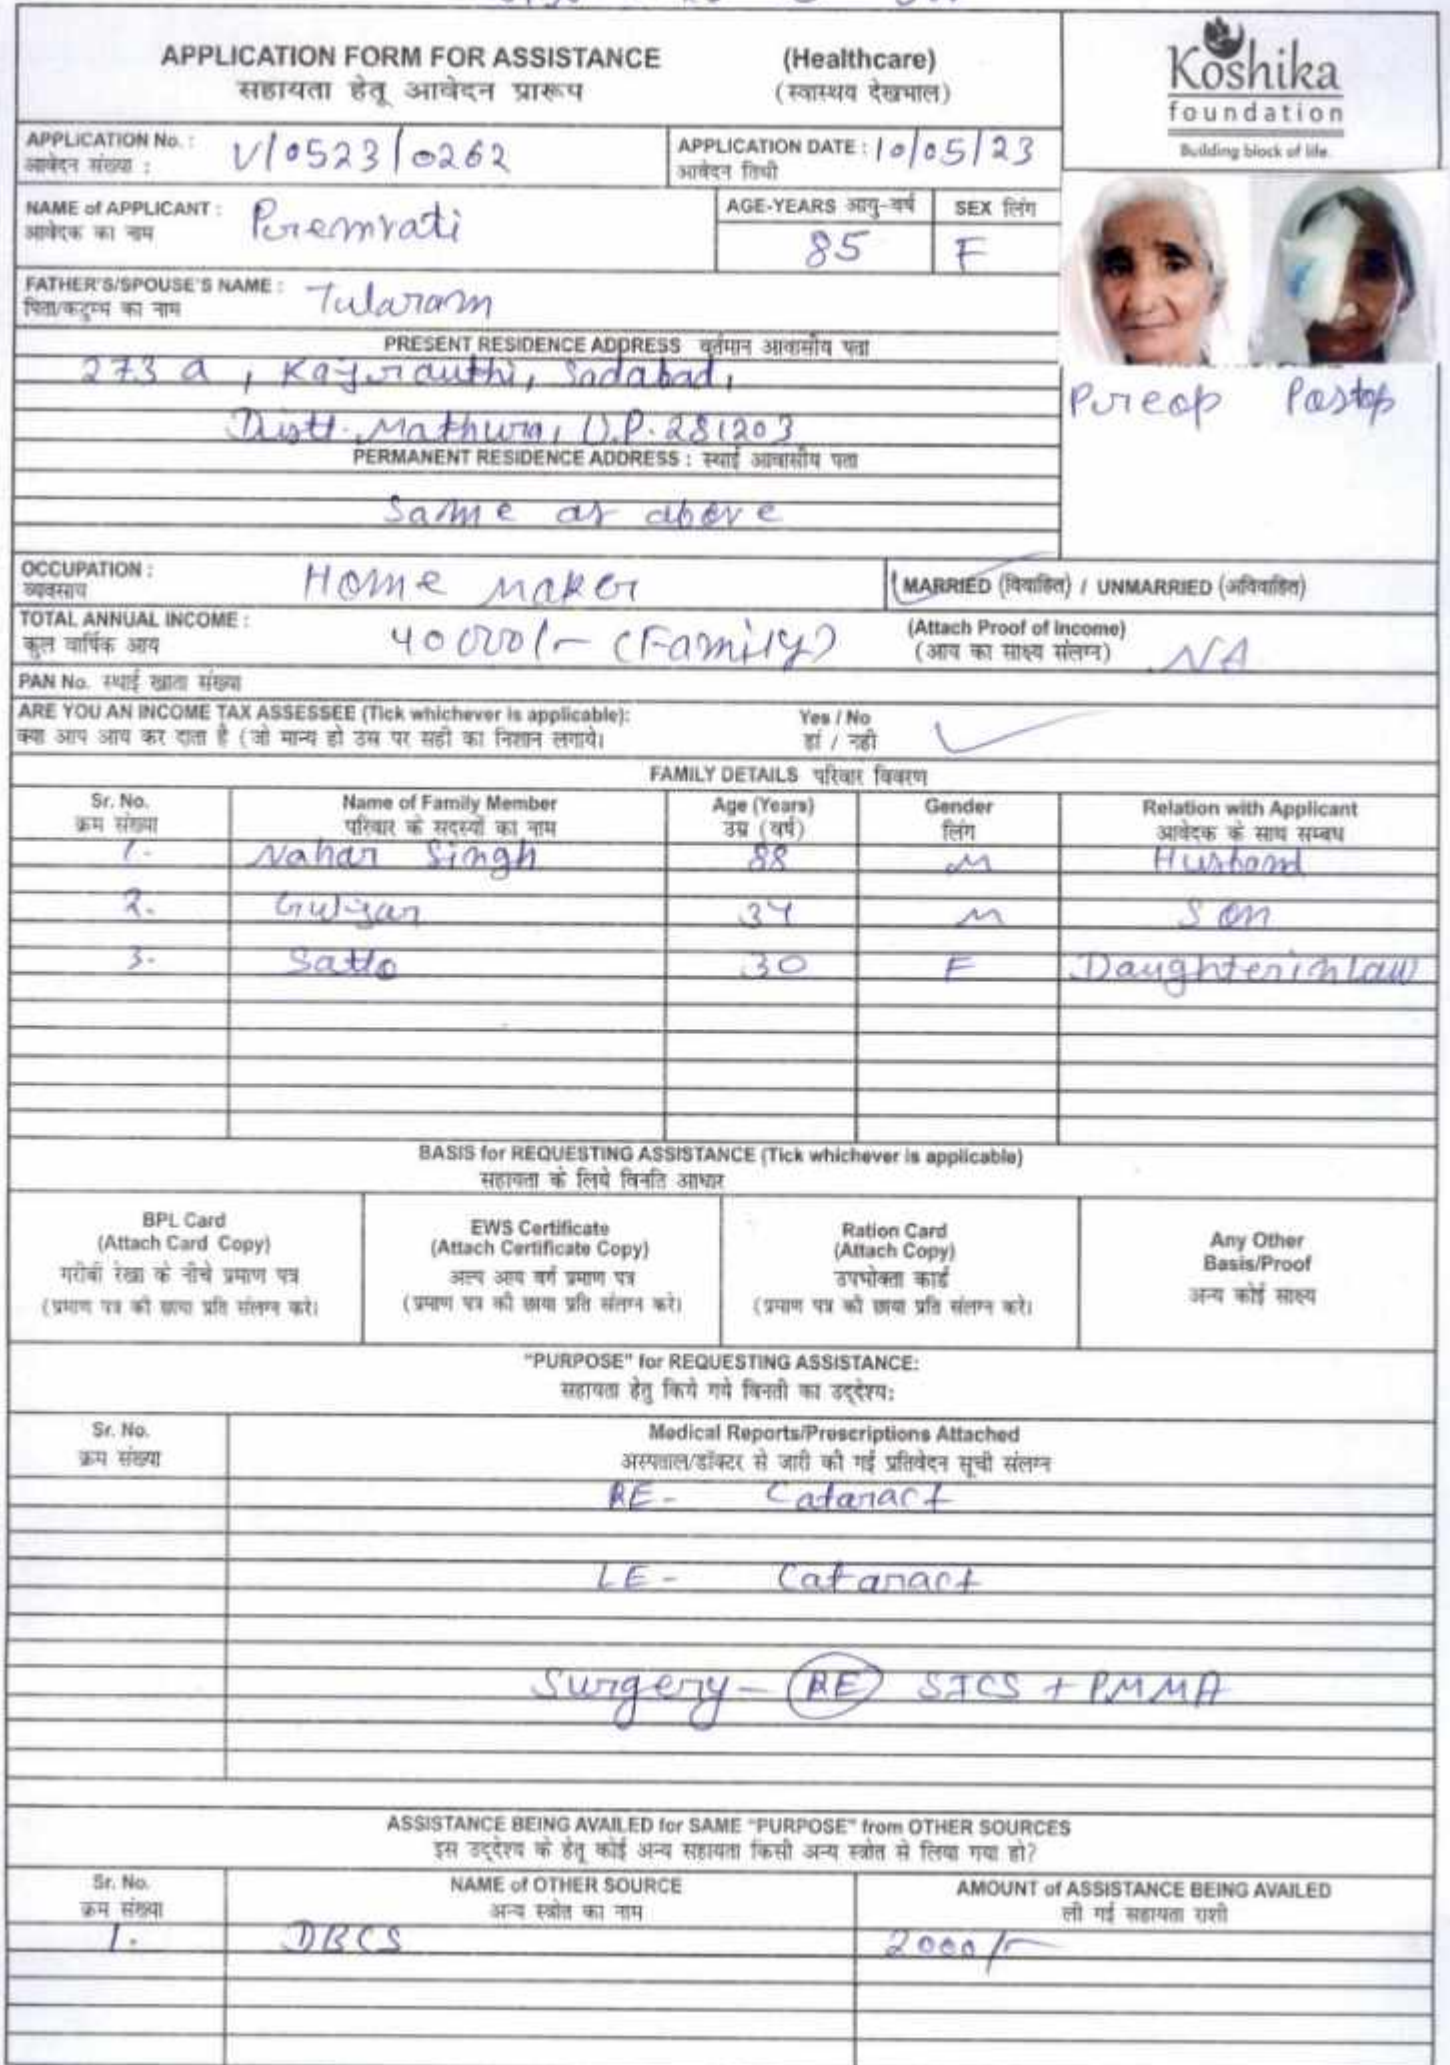 APPLICATION FORM FOR ASSISTANCE (Healthcare)
सहायता हेतू आवेदन प्रारूप (स्वास्थय देखभाल)
Koshika
foundation
Building block of life.
APPLICATION No. : V/0523/0262
आवेदन संख्या :
APPLICATION DATE : 10/05/23
आवेदन तिथी
NAME of APPLICANT : Premvati
आवेदक का नाम
AGE-YEARS आयु-वर्ष SEX लिंग
85 F
FATHER'S/SPOUSE'S NAME : Tularam
पिता/कटुम्भ का नाम
PRESENT RESIDENCE ADDRESS वर्तमान आवासीय पता
273 a, Kajrauthi, Sadabad,
Distt. Mathura, U.P. 281203
Preop Postop
PERMANENT RESIDENCE ADDRESS : स्थाई आवासीय पता
Same as above
OCCUPATION : Home maker
व्यवसाय
MARRIED (विवाहित) / UNMARRIED (अविवाहित)
TOTAL ANNUAL INCOME : 40000/- (Family)
कुल वार्षिक आय
(Attach Proof of Income)
(आय का साक्ष्य संलग्न) NA
PAN No. स्थाई खाता संख्या
ARE YOU AN INCOME TAX ASSESSEE (Tick whichever is applicable): Yes / No
क्या आप आय कर दाता है (जो मान्य हो उस पर सही का निशान लगाये। हां / नही
FAMILY DETAILS परिवार विवरण
Sr. No. Name of Family Member Age (Years) Gender Relation with Applicant
क्रम संख्या परिवार के सदस्यों का नाम उम्र (वर्ष) लिंग आवेदक के साथ सम्बध
1. Nahar Singh 88 M Husband
2. Gulzar 34 M Son
3. Satto 30 F Daughterinlaw
BASIS for REQUESTING ASSISTANCE (Tick whichever is applicable)
सहायता के लिये विनति आधार
BPL Card
(Attach Card Copy)
गरीबी रेखा के नीचे प्रमाण पत्र
(प्रमाण पत्र की छाया प्रति संलग्न करे।
EWS Certificate
(Attach Certificate Copy)
अल्प आय वर्ग प्रमाण पत्र
(प्रमाण पत्र की छाया प्रति संलग्न करे।
Ration Card
(Attach Copy)
उपभोक्ता कार्ड
(प्रमाण पत्र की छाया प्रति संलग्न करे।
Any Other
Basis/Proof
अन्य कोई साक्ष्य
"PURPOSE" for REQUESTING ASSISTANCE:
सहायता हेतु किये गये विनती का उद्देश्य:
Sr. No. Medical Reports/Prescriptions Attached
क्रम संख्या अस्पताल/डॉक्टर से जारी की गई प्रतिवेदन सूची संलग्न
RE - Cataract
LE - Cataract
Surgery - RE SICS + PMMA
ASSISTANCE BEING AVAILED for SAME "PURPOSE" from OTHER SOURCES
इस उद्देश्य के हेतू कोई अन्य सहायता किसी अन्य स्त्रोत से लिया गया हो?
Sr. No. NAME of OTHER SOURCE AMOUNT of ASSISTANCE BEING AVAILED
क्रम संख्या अन्य स्त्रोत का नाम ली गई सहायता राशी
1. DBCS 2000/-